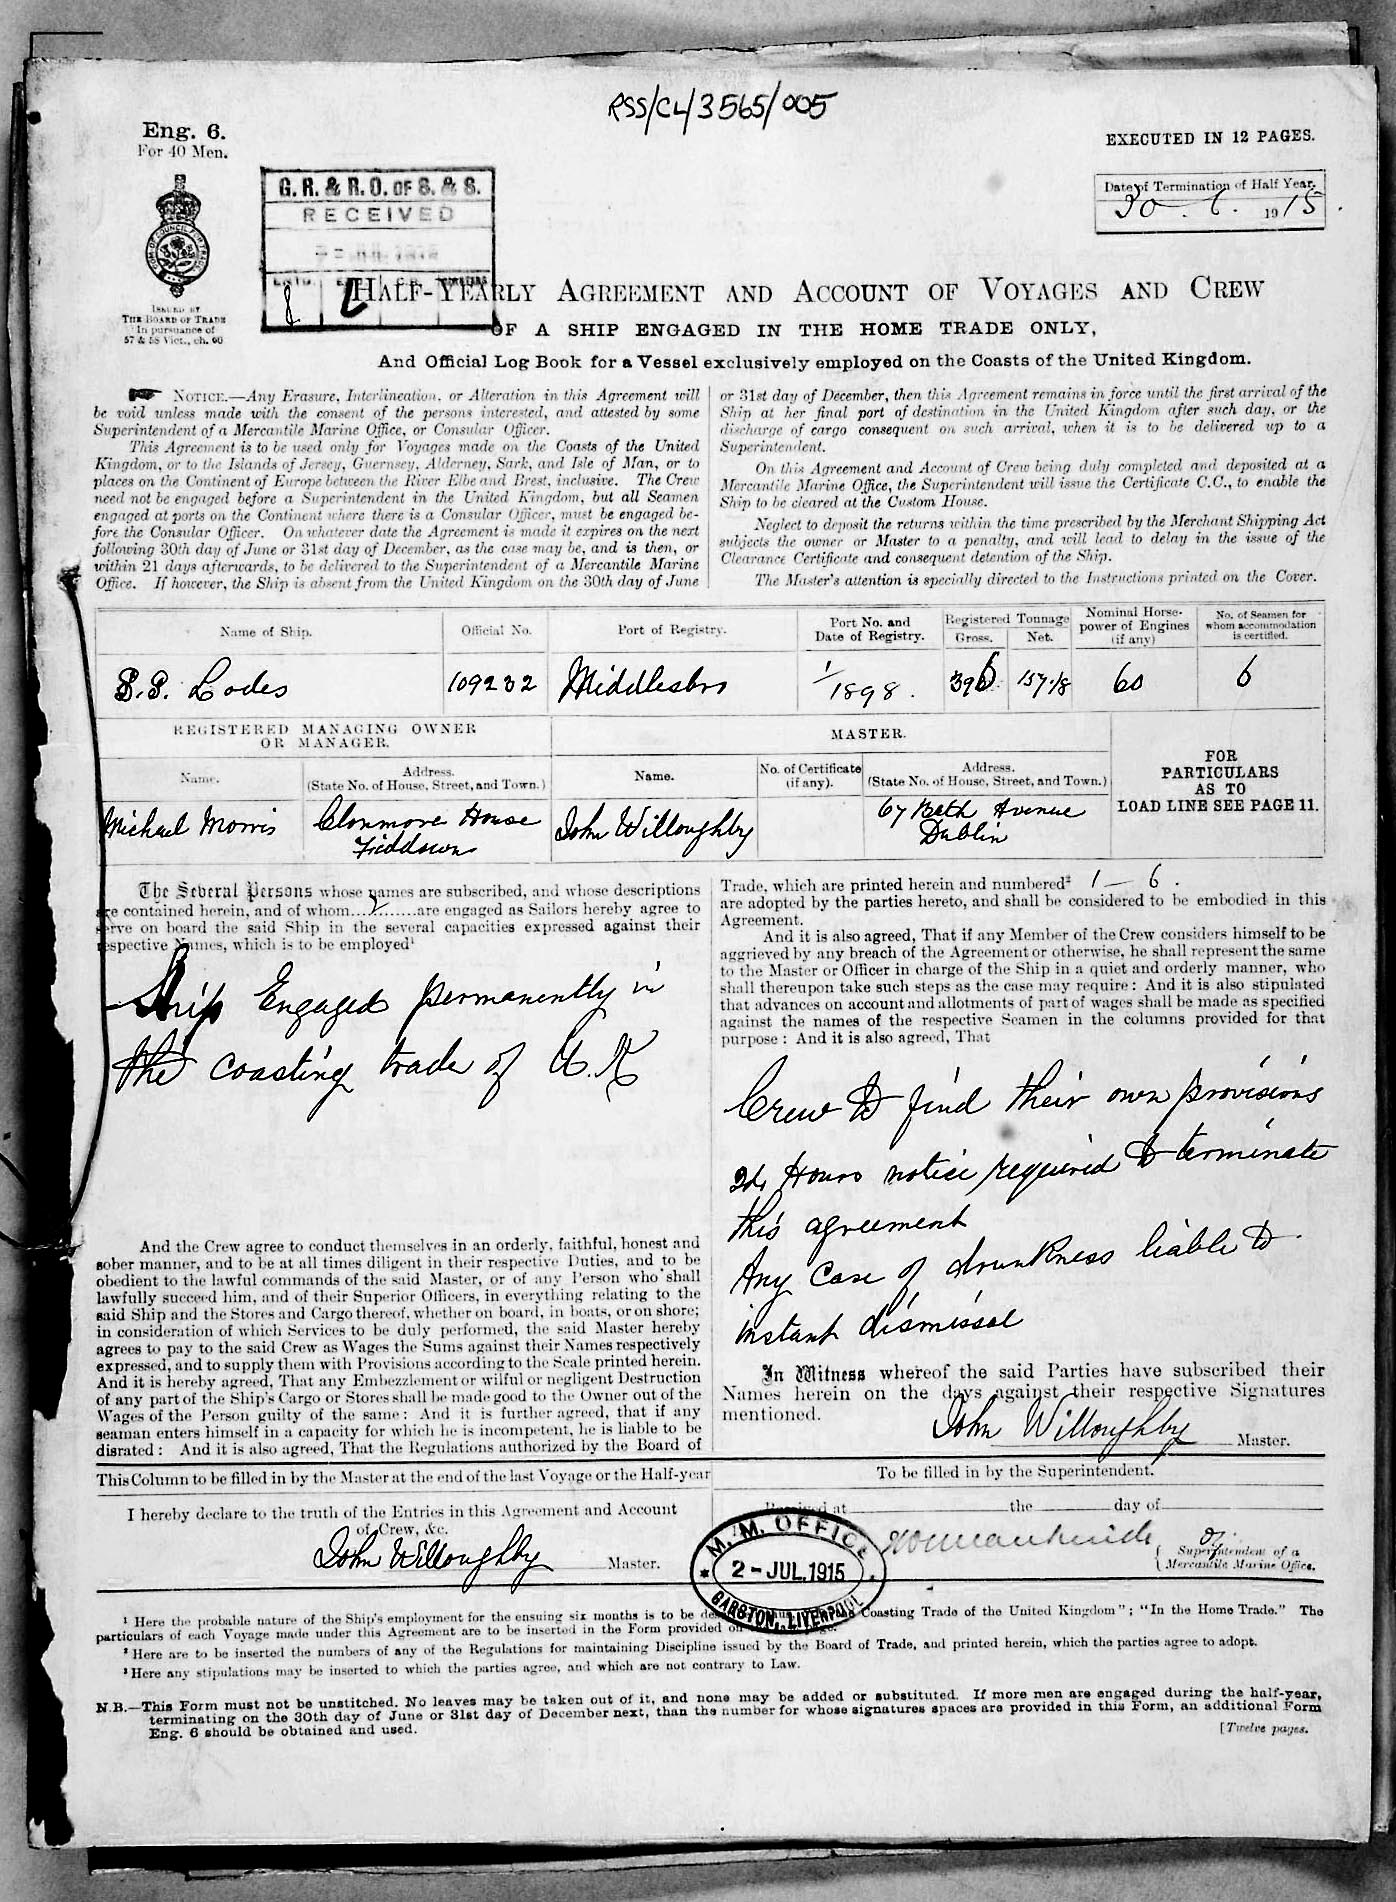 RSS/CL/3565/005
Eng. 6.
For 40 Men.
EXECUTED IN 12 PAGES.
Date of Termination of Half Year.
30 . 6 . 1915
G. R. & R. O. OF S. & S.
RECEIVED
ISSUED BY
THE BOARD OF TRADE
In pursuance of
57 & 58 Vict., ch. 60
HALF-YEARLY AGREEMENT AND ACCOUNT OF VOYAGES AND CREW
OF A SHIP ENGAGED IN THE HOME TRADE ONLY,
And Official Log Book for a Vessel exclusively employed on the Coasts of the United Kingdom.
NOTICE.—Any Erasure, Interlineation, or Alteration in this Agreement will
be void unless made with the consent of the persons interested, and attested by some
Superintendent of a Mercantile Marine Office, or Consular Officer.
This Agreement is to be used only for Voyages made on the Coasts of the United
Kingdom, or to the Islands of Jersey, Guernsey, Alderney, Sark, and Isle of Man, or to
places on the Continent of Europe between the River Elbe and Brest, inclusive. The Crew
need not be engaged before a Superintendent in the United Kingdom, but all Seamen
engaged at ports on the Continent where there is a Consular Officer, must be engaged be-
fore the Consular Officer. On whatever date the Agreement is made it expires on the next
following 30th day of June or 31st day of December, as the case may be, and is then, or
within 21 days afterwards, to be delivered to the Superintendent of a Mercantile Marine
Office. If however, the Ship is absent from the United Kingdom on the 30th day of June
or 31st day of December, then this Agreement remains in force until the first arrival of the
Ship at her final port of destination in the United Kingdom after such day, or the
discharge of cargo consequent on such arrival, when it is to be delivered up to a
Superintendent.
On this Agreement and Account of Crew being duly completed and deposited at a
Mercantile Marine Office, the Superintendent will issue the Certificate C.C., to enable the
Ship to be cleared at the Custom House.
Neglect to deposit the returns within the time prescribed by the Merchant Shipping Act
subjects the owner or Master to a penalty, and will lead to delay in the issue of the
Clearance Certificate and consequent detention of the Ship.
The Master's attention is specially directed to the Instructions printed on the Cover.
Name of Ship. Official No. Port of Registry. Port No. and Date of Registry. Registered Tonnage Gross. Net. Nominal Horse-power of Engines (if any) No. of Seamen for whom accommodation is certified.
S.S. Lodes 109232 Middlesbro 1/1898. 396 157.18 60 6
REGISTERED MANAGING OWNER OR MANAGER.
MASTER.
FOR
PARTICULARS
AS TO
LOAD LINE SEE PAGE 11.
Name. Address. (State No. of House, Street, and Town.) Name. No. of Certificate (if any). Address. (State No. of House, Street, and Town.)
Michael Morris Clonmore House Fiddown John Willoughby 67 Bath Avenue Dublin
The Several Persons whose names are subscribed, and whose descriptions
are contained herein, and of whom are engaged as Sailors hereby agree to
serve on board the said Ship in the several capacities expressed against their
respective Names, which is to be employed¹
Ship Engaged permanently in
the coasting trade of U.K
And the Crew agree to conduct themselves in an orderly, faithful, honest and
sober manner, and to be at all times diligent in their respective Duties, and to be
obedient to the lawful commands of the said Master, or of any Person who shall
lawfully succeed him, and of their Superior Officers, in everything relating to the
said Ship and the Stores and Cargo thereof, whether on board, in boats, or on shore;
in consideration of which Services to be duly performed, the said Master hereby
agrees to pay to the said Crew as Wages the Sums against their Names respectively
expressed, and to supply them with Provisions according to the Scale printed herein.
And it is hereby agreed, That any Embezzlement or wilful or negligent Destruction
of any part of the Ship's Cargo or Stores shall be made good to the Owner out of the
Wages of the Person guilty of the same: And it is further agreed, that if any
seaman enters himself in a capacity for which he is incompetent, he is liable to be
disrated: And it is also agreed, That the Regulations authorized by the Board of
Trade, which are printed herein and numbered² 1 — 6 .
are adopted by the parties hereto, and shall be considered to be embodied in this
Agreement.
And it is also agreed, That if any Member of the Crew considers himself to be
aggrieved by any breach of the Agreement or otherwise, he shall represent the same
to the Master or Officer in charge of the Ship in a quiet and orderly manner, who
shall thereupon take such steps as the case may require: And it is also stipulated
that advances on account and allotments of part of wages shall be made as specified
against the names of the respective Seamen in the columns provided for that
purpose: And it is also agreed, That
Crew to find their own provisions
24 Hours notice required to terminate
this agreement
Any Case of drunkness liable to
instant dismissal
In Witness whereof the said Parties have subscribed their
Names herein on the days against their respective Signatures
mentioned.
John Willoughby Master.
This Column to be filled in by the Master at the end of the last Voyage or the Half-year
I hereby declare to the truth of the Entries in this Agreement and Account
of Crew, &c.
John Willoughby Master.
To be filled in by the Superintendent.
Received at the day of
Superintendent of a
Mercantile Marine Office.
M. M. OFFICE
2 - JUL. 1915
GARSTON, LIVERPOOL
¹ Here the probable nature of the Ship's employment for the ensuing six months is to be Coasting Trade of the United Kingdom"; "In the Home Trade." The
particulars of each Voyage made under this Agreement are to be inserted in the Form provided on
² Here are to be inserted the numbers of any of the Regulations for maintaining Discipline issued by the Board of Trade, and printed herein, which the parties agree to adopt.
³ Here any stipulations may be inserted to which the parties agree, and which are not contrary to Law.
N.B.—This Form must not be unstitched. No leaves may be taken out of it, and none may be added or substituted. If more men are engaged during the half-year,
terminating on the 30th day of June or 31st day of December next, than the number for whose signatures spaces are provided in this Form, an additional Form
Eng. 6 should be obtained and used.
[Twelve pages.